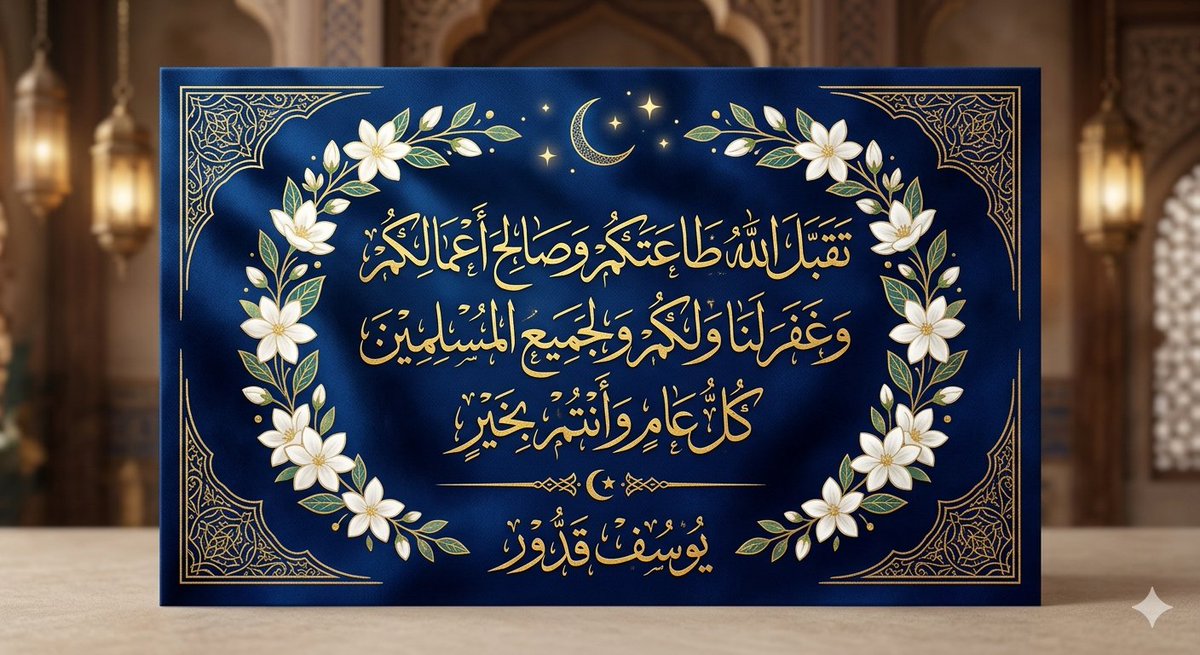 تَقَبَّلَ اللهُ طَاعَتَكُمْ وَصَالِحَ أَعْمَالِكُمْ
وَغَفَرَ لَنَا وَلَكُمْ وَلِجَمِيعِ المُسْلِمِينَ
كُلُّ عَامٍ وَأَنْتُمْ بِخَيْرٍ
يُوسُفْ قَدُّورْ